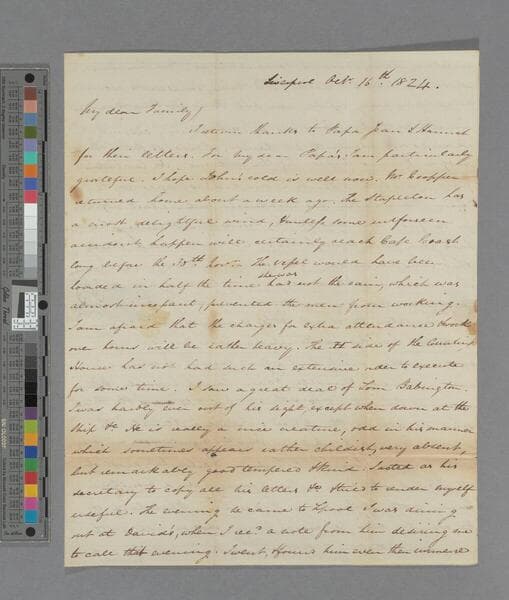 Liverpool Oct. 16th 1824.
My dear Family,
I return thanks to Papa, Jean & Hannah
for their letters. For my dear Papa's I am particularly
grateful. I hope John's cold is well now. Mr
returned home about a week ago. The Stapleton has
a most delightful wind, & unless some unforseen
accident happen will certainly reach Cape Coast
long before the Novr. The vessel would have been
loaded in half the time she was had not the rain, which was
almost incessant, prevented the men from working.
I am afraid that the charges for extra attendance
one hours will be rather heavy. The side of the
House has not had such an extensive order to execute
for some time. I saw a great deal of Tom Babington.
I was hardly ever out of his sight, except when down at the
Ship &c. He is really a nice creature, odd in his manner
which sometimes appears rather childish, very absent,
but remarkably good tempered & kind. I acted as his
secretary to copy all his letters &c & tried to render myself
useful. The evening he came to Lpool I was dining
out at David's, when I recd. a note from him desiring me
to call that evening. I went, found him even then immersed